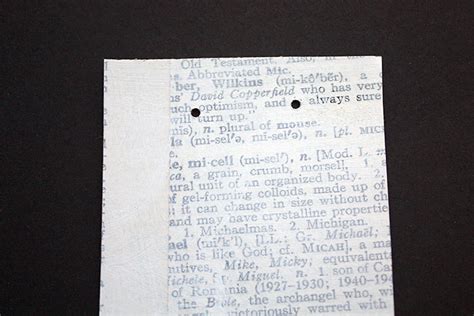 Old Testament. Also, in
s. Abbreviated Mic.
ber, Wilkins (mi-kô′bẽr), a
s' David Copperfield who has very
uch optimism, and always sure
will turn up."
is), n. plural of mouse.
la (mi-sel′ə), n. [pl. MICE
le, mi-cell (mi-sel′), n. [Mod. L.
ca, a grain, crumb, morsel], 1.
ural unit of an organized body. 2.
of gel-forming colloids, made up of
s: it can change in size without ch
and may have crystalline propertie
1. Michaelmas. 2. Michigan.
ael (mī′k'l), [LL.; Gr. Michaēl;
who is like God; cf. MICAH], a ma
utives, Mike, Micky; equivalents
Michele, Fr. Miguel. n. 1. son of Ca
of Romania (1927–1930; 1940–194
the Bible, the archangel who,
victoriously warred with